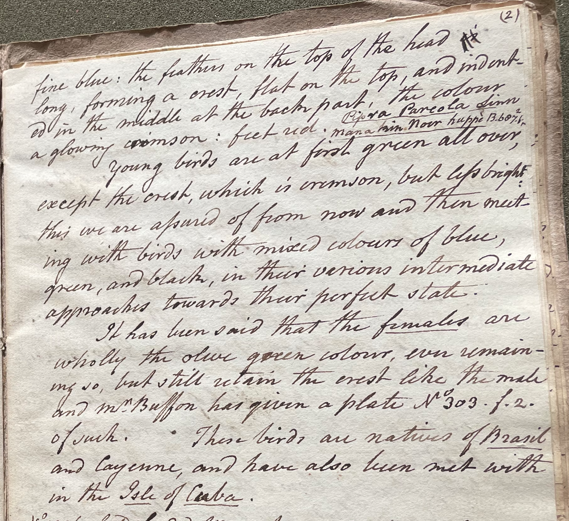 (2)
fine blue: the feathers on the top of the head
long, forming a crest, flat on the top, and indent-
ed in the middle at the back part, the colour
a glowing crimson: feet red: Pipra Pareola Linn
manakin. Noir huppé B.
Young birds are at first green all over,
except the crest, which is crimson, but less bright:
this we are assured of from now and then meet-
ing with birds with mixed colours of blue,
green, and black, in their various intermediate
approaches towards their perfect state.
It has been said that the females are
wholly the olive green colour, ever remain-
ing so, but still retain the crest like the male
and mr. Buffon has given a plate No. 303. f. 2.
of such. These birds are natives of Brasil
and Cayenne, and have also been met with
in the Isle of Cuba.